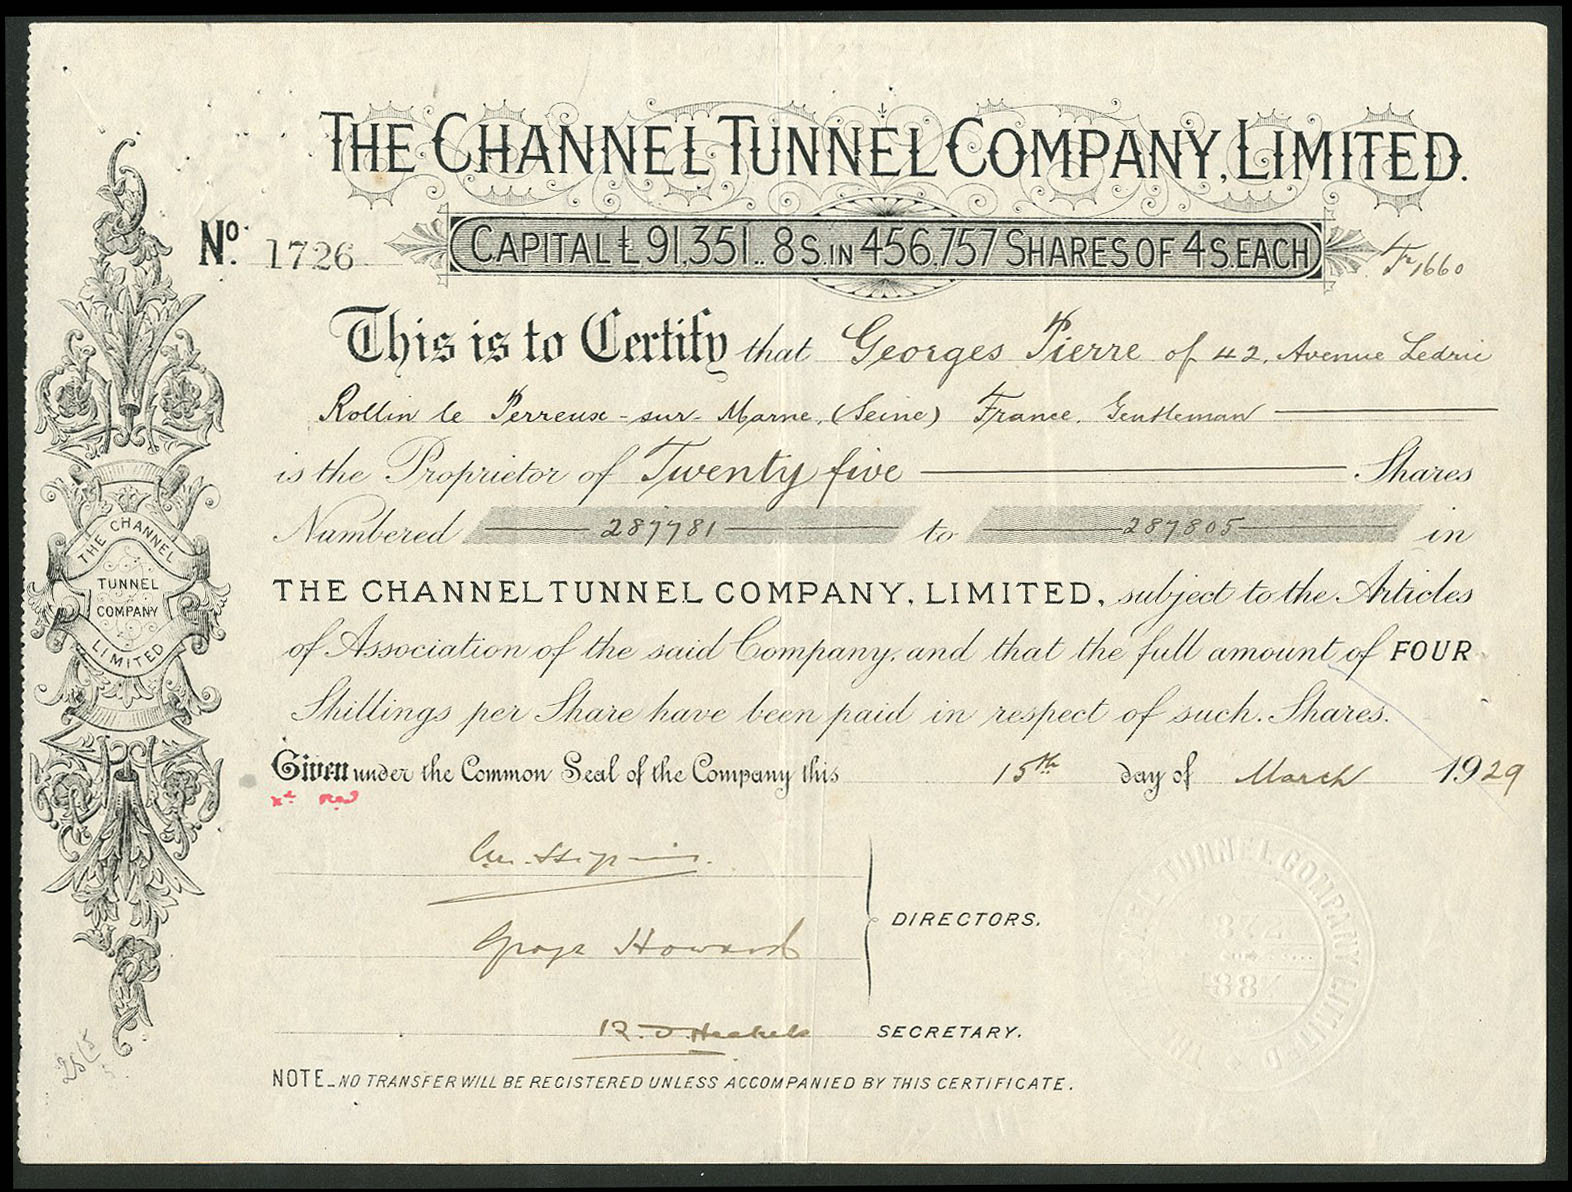 THE CHANNEL TUNNEL COMPANY, LIMITED.
No. 1726
CAPITAL £91,351.. 8S. IN 456.757 SHARES OF 4S. EACH
Tr 1660
This is to Certify that Georges Pierre of 42, Avenue Ledru
Rollin le Perreux-sur-Marne, (Seine) France, Gentleman
is the Proprietor of Twenty five Shares
Numbered 287781 to 287805 in
THE CHANNEL TUNNEL COMPANY, LIMITED, subject to the Articles
of Association of the said Company, and that the full amount of FOUR
Shillings per Share have been paid in respect of such Shares.
Given under the Common Seal of the Company this 15th day of March 1929
George Howard
DIRECTORS.
SECRETARY.
NOTE_NO TRANSFER WILL BE REGISTERED UNLESS ACCOMPANIED BY THIS CERTIFICATE.
THE CHANNEL
TUNNEL
COMPANY
LIMITED
CHANNEL TUNNEL COMPANY LIMITED